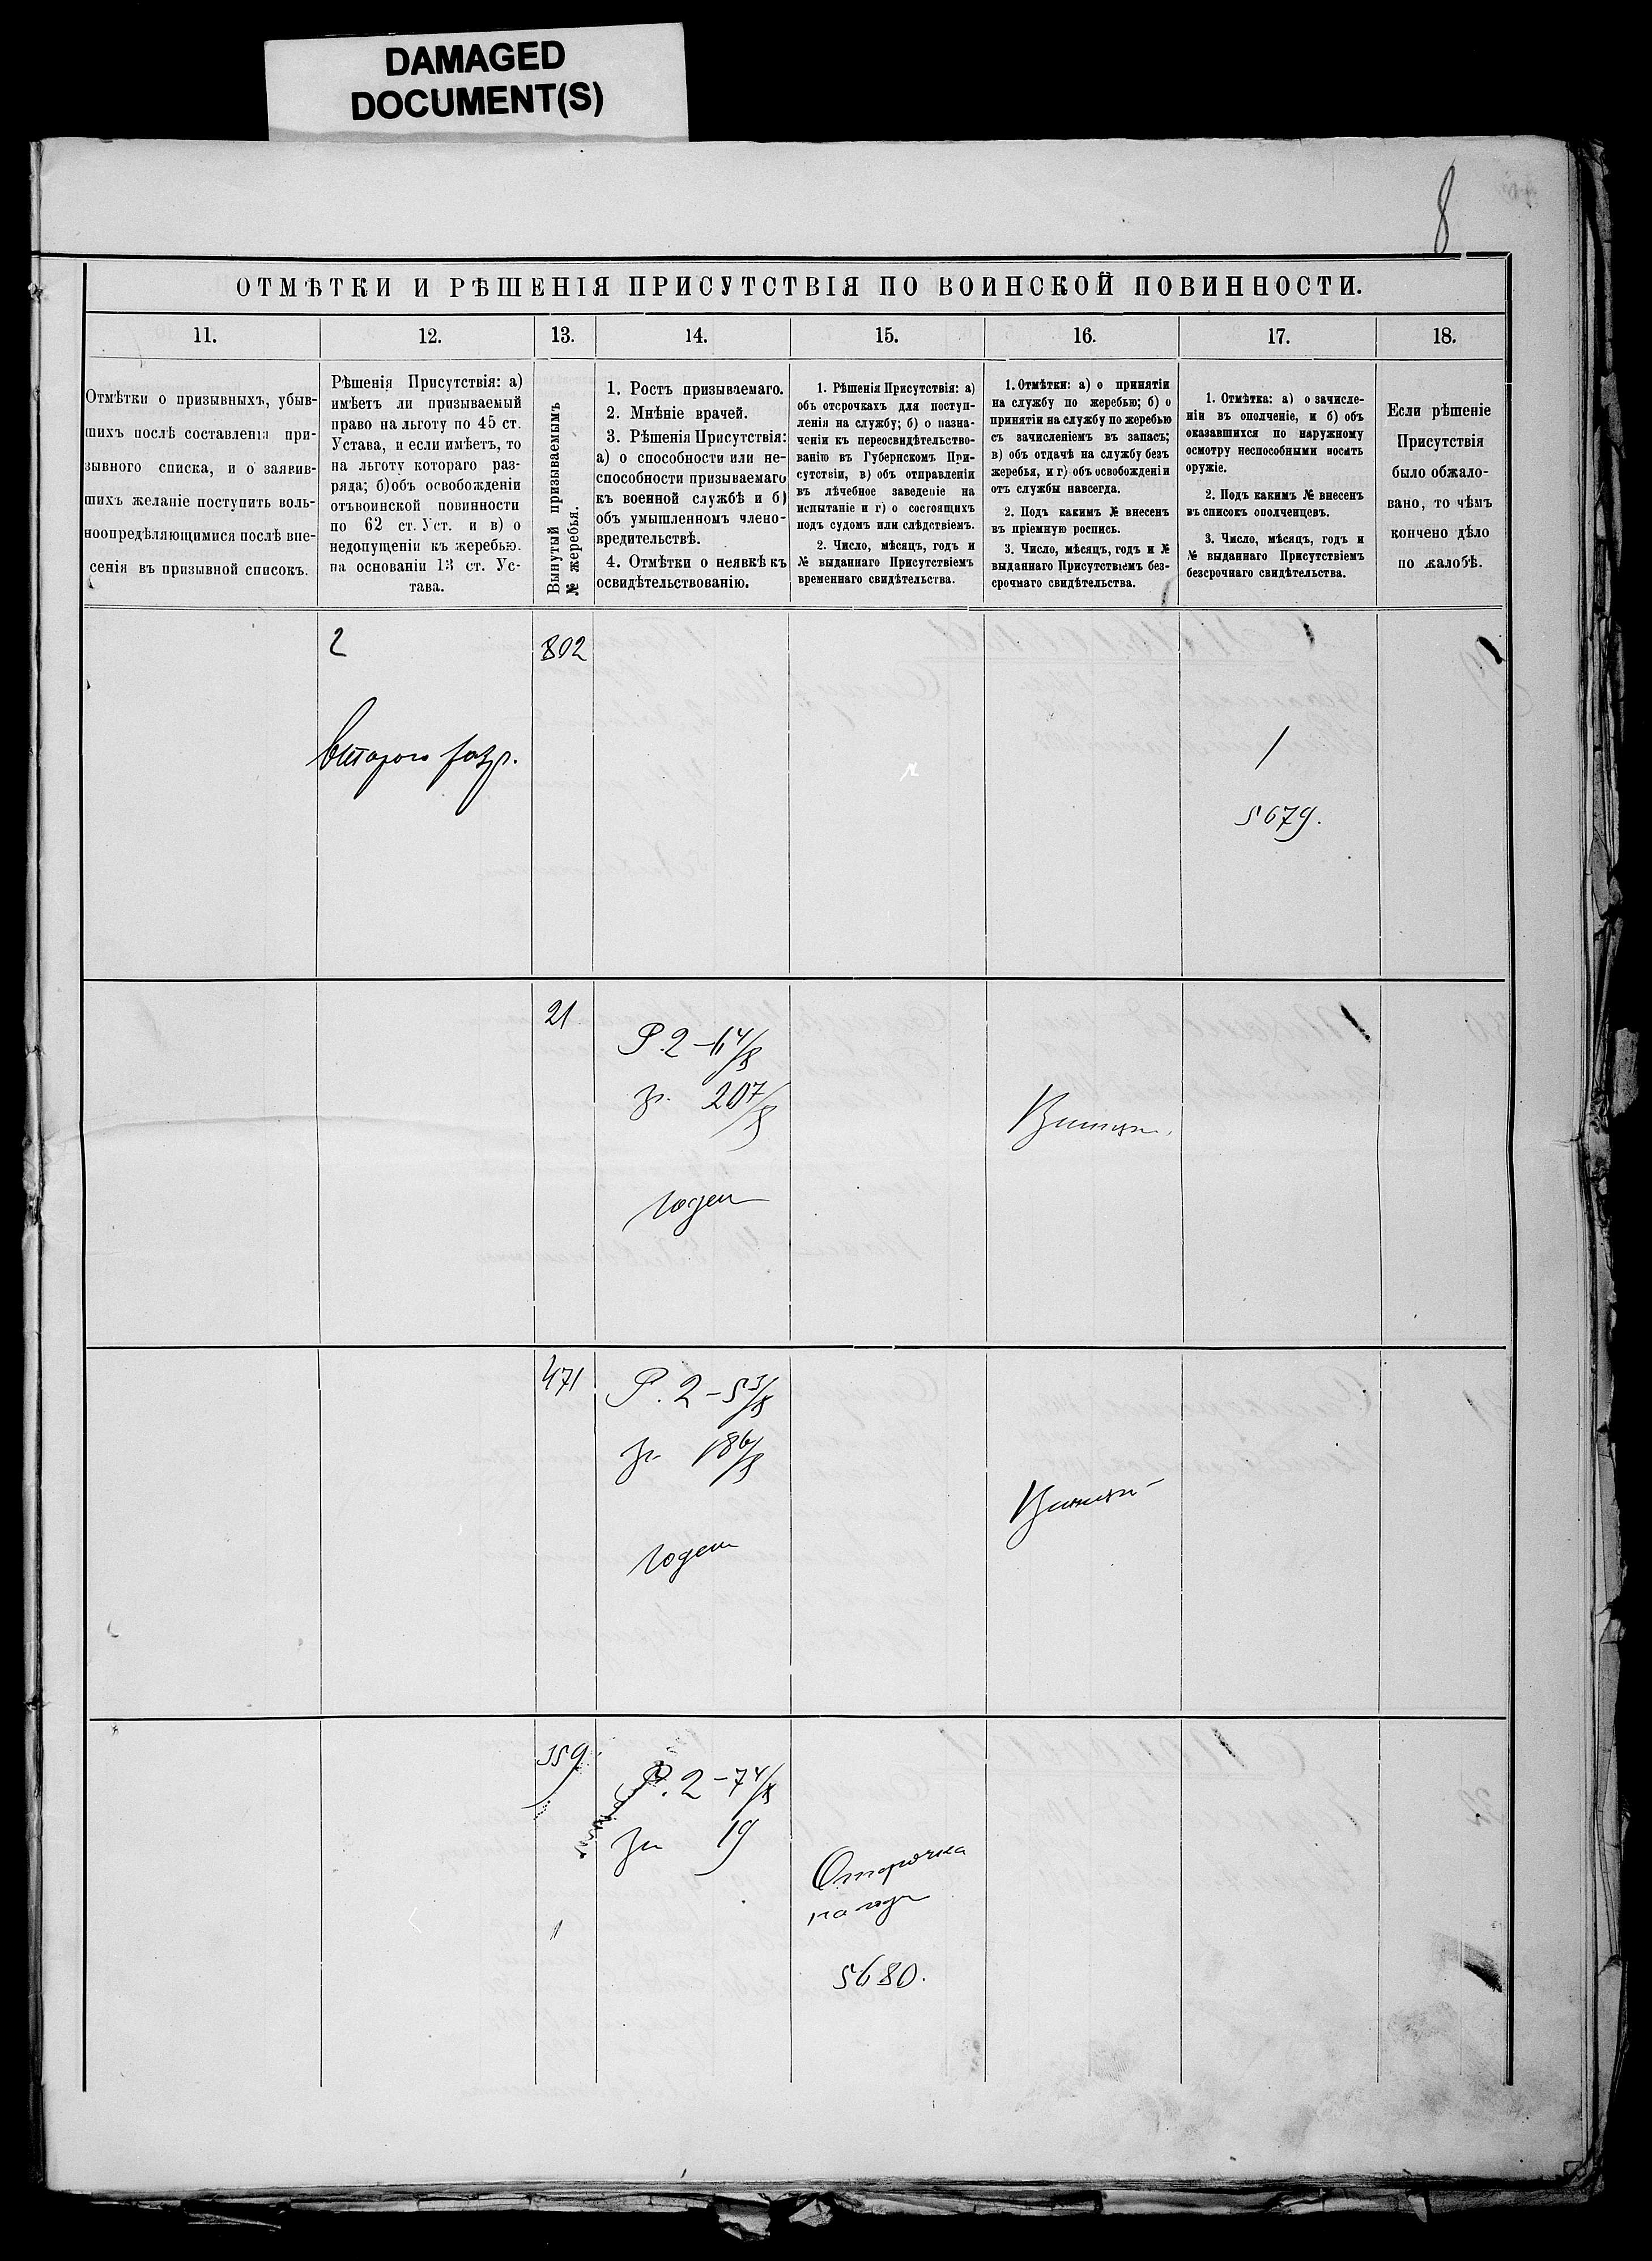 DAMAGED
DOCUMENT(S)
8
ОТМѢТКИ И РѢШЕНІЯ ПРИСУТСТВІЯ ПО ВОИНСКОЙ ПОВИННОСТИ.
11.
12.
13.
14.
15.
16.
17.
18.
Отмѣтки о призывныхъ, убыв-
шихъ послѣ составленія при-
зывного списка, и о заявив-
шихъ желаніе поступить воль-
ноопредѣляющимися послѣ вне-
сенія въ призывной списокъ.
Рѣшенія Присутствія: а)
имѣетъ ли призываемый
право на льготу по 45 ст.
Устава, и если имѣетъ, то
на льготу котораго раз-
ряда; б)объ освобожденіи
отъвоинской повинности
по 62 ст. Уст. и в) о
недопущеніи къ жеребью.
на основаніи 13 ст. Ус-
тава.
Вынутый призываемымъ
№ жеребья.
1. Ростъ призываемаго.
2. Мнѣніе врачей.
3. Рѣшенія Присутствія:
а) о способности или не-
способности призываемаго
къ военной службѣ и б)
объ умышленномъ члено-
вредительствѣ.
4. Отмѣтки о неявкѣ къ
освидѣтельствованію.
1. Рѣшенія Присутствія: а)
объ отсрочкахъ для поступ-
ленія на службу; б) о назна-
ченіи къ переосвидѣтельство-
ванію въ Губернскомъ При-
сутствіи, в) объ отправленіи
въ лѣчебное заведеніе на
испытаніе и г) о состоящихъ
подъ судомъ или слѣдствіемъ.
2. Число, мѣсяцъ, годъ и
№ выданнаго Присутствіемъ
временнаго свидѣтельства.
1. Отмѣтки: а) о принятіи
на службу по жеребью; б) о
принятіи на службу по жеребью
съ зачисленіемъ въ запасъ;
в) объ отдачѣ на службу безъ
жеребья, и г) объ освобожденіи
отъ службы навсегда.
2. Подъ какимъ № внесенъ
въ пріемную роспись.
3. Число, мѣсяцъ, годъ и №
выданнаго Присутствіемъ без-
срочнаго свидѣтельства.
1. Отмѣтка: а) о зачисле-
ніи въ ополченіе, и б) объ
оказавшихся по наружному
осмотру неспособными носить
оружіе.
2. Подъ какимъ № внесенъ
въ списокъ ополченцевъ.
3. Число, мѣсяцъ, годъ и
№ выданнаго Присутствіемъ
безсрочнаго свидѣтельства.
Если рѣшеніе
Присутствія
было обжало-
вано, то чѣмъ
кончено дѣло
по жалобѣ.
2
802
второго разр.
1
5679.
21
Р. 2 – 6 4/8
гр. 20 7/8
годен
471
Р. 2 – 5 3/8
гр. 18 6/8
годен
359
Р. 2 – 7 4/8
гр 19
Отсрочка
на годъ
5680.